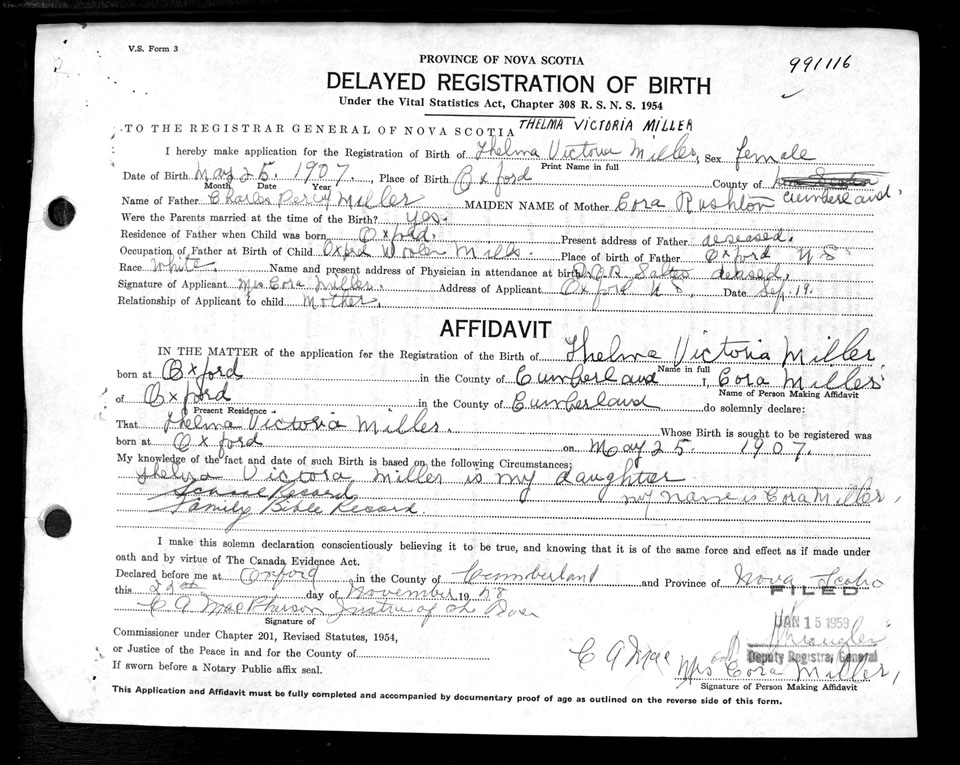 V.S. Form 3
991116
PROVINCE OF NOVA SCOTIA
DELAYED REGISTRATION OF BIRTH
Under the Vital Statistics Act, Chapter 308 R. S. N. S. 1954
THELMA VICTORIA MILLER
TO THE REGISTRAR GENERAL OF NOVA SCOTIA
I hereby make application for the Registration of Birth of Thelma Victoria Miller, Sex female
Print Name in full
Date of Birth May 25. 1907. , Place of Birth Oxford County of Nova Scotia
Month Date Year
Cumberland
Name of Father Charles Percy Miller MAIDEN NAME of Mother Cora Rushton
Were the Parents married at the time of the Birth? yes.
Residence of Father when Child was born Oxford. Present address of Father deseased.
Occupation of Father at Birth of Child Oxford Woolen Mills. Place of birth of Father Oxford N S
Race White. Name and present address of Physician in attendance at birth
Signature of Applicant Mrs Cora Miller. Address of Applicant Oxford N S. Date Sep. 19.
Relationship of Applicant to child Mother.
AFFIDAVIT
IN THE MATTER of the application for the Registration of the Birth of Thelma Victoria Miller
Name in full
born at Oxford in the County of Cumberland I, Cora Miller
Name of Person Making Affidavit
of Oxford in the County of Cumberland do solemnly declare:
Present Residence
That Thelma Victoria Miller. Whose Birth is sought to be registered was
born at Oxford on May 25. 1907.
My knowledge of the fact and date of such Birth is based on the following Circumstances:
Thelma Victora Miller is my daughter
School Record my name is Cora Miller,
Family Bible Record.
I make this solemn declaration conscientiously believing it to be true, and knowing that it is of the same force and effect as if made under
oath and by virtue of The Canada Evidence Act.
Declared before me at Oxford in the County of Cumberland and Province of Nova Scotia
this 22nd day of November 1958
FILED
C A MacPherson Justice of the Peace
Signature of
JAN 15 1959
Commissioner under Chapter 201, Revised Statutes, 1954,
or Justice of the Peace in and for the County of
Deputy Registrar General
C A Mac
If sworn before a Notary Public affix seal.
Mrs Cora Miller,
Signature of Person Making Affidavit
This Application and Affidavit must be fully completed and accompanied by documentary proof of age as outlined on the reverse side of this form.